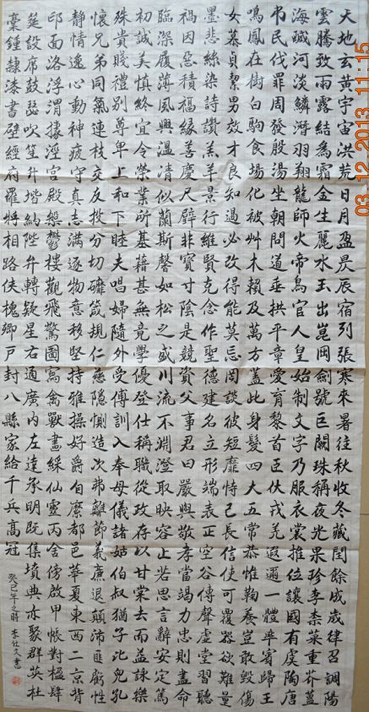 天地玄黃宇宙洪荒日月盈昃辰宿列張寒來暑往秋收冬藏閏餘成歲律召調陽
雲騰致雨露結為霜金生麗水玉出崑岡劍號巨闕珠稱夜光果珍李柰菜重芥薑
海鹹河淡鱗潛羽翔龍師火帝鳥官人皇始制文字乃服衣裳推位讓國有虞陶唐
弔民伐罪周發殷湯坐朝問道垂拱平章愛育黎首臣伏戎羌遐邇一體率賓歸王
鳴鳳在樹白駒食場化被艸木賴及萬方蓋此身髮四大五常恭惟鞠養豈敢毀傷
女慕貞絜男效才良知過必改得能莫忘罔談彼短靡恃己長信使可覆器欲難量
墨悲絲染詩讚羔羊景行維賢克念作聖德建名立形端表正空谷傳聲虛堂習聽
禍因惡積福緣善慶尺璧非寶寸陰是競資父事君曰嚴與敬孝當竭力忠則盡命
臨深履薄夙興溫凊似蘭斯馨如松之盛川流不淵澄取映容止若思言辭安定篤
初誠美慎終宜令榮業所基藉甚無竟學優登仕攝職從政存以甘棠去而益詠樂
殊貴賤禮別尊卑上和下睦夫唱婦隨外受傅訓入奉母儀諸姑伯叔猶子比兒孔
懷兄弟同氣連枝交友投分切磨箴規仁慈隱惻造次弗離節義廉退顛沛匪虧性
靜情逸心動神疲守真志滿逐物意移堅持雅操好爵自縻都邑華夏東西二京背
邙面洛浮渭據涇宮殿盤鬱樓觀飛驚圖寫禽獸畫綵仙靈丙舍傍啟甲帳對楹肆
筵設席鼓瑟吹笙升階納陛弁轉疑星右通廣內左達承明既集墳典亦聚群英杜
稾鍾隸漆書壁經府羅將相路俠槐卿戶封八縣家給千兵高冠
癸巳年之時
03.12.2013 11:15